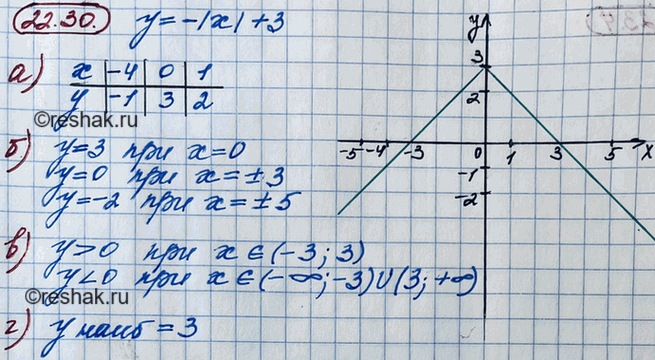 22.30. y=-|x|+3
а) x | -4 | 0 | 1
y | -1 | 3 | 2
©reshak.ru
б) y=3 при x=0
y=0 при x=±3
y=-2 при x=±5
в) y>0 при x∈(-3; 3)
y<0 при x∈(-∞; -3)∪(3; +∞)
©reshak.ru
г) y наиб = 3
y
3
2
-5 -4 -3 0 1 3 5 x
-1
-2